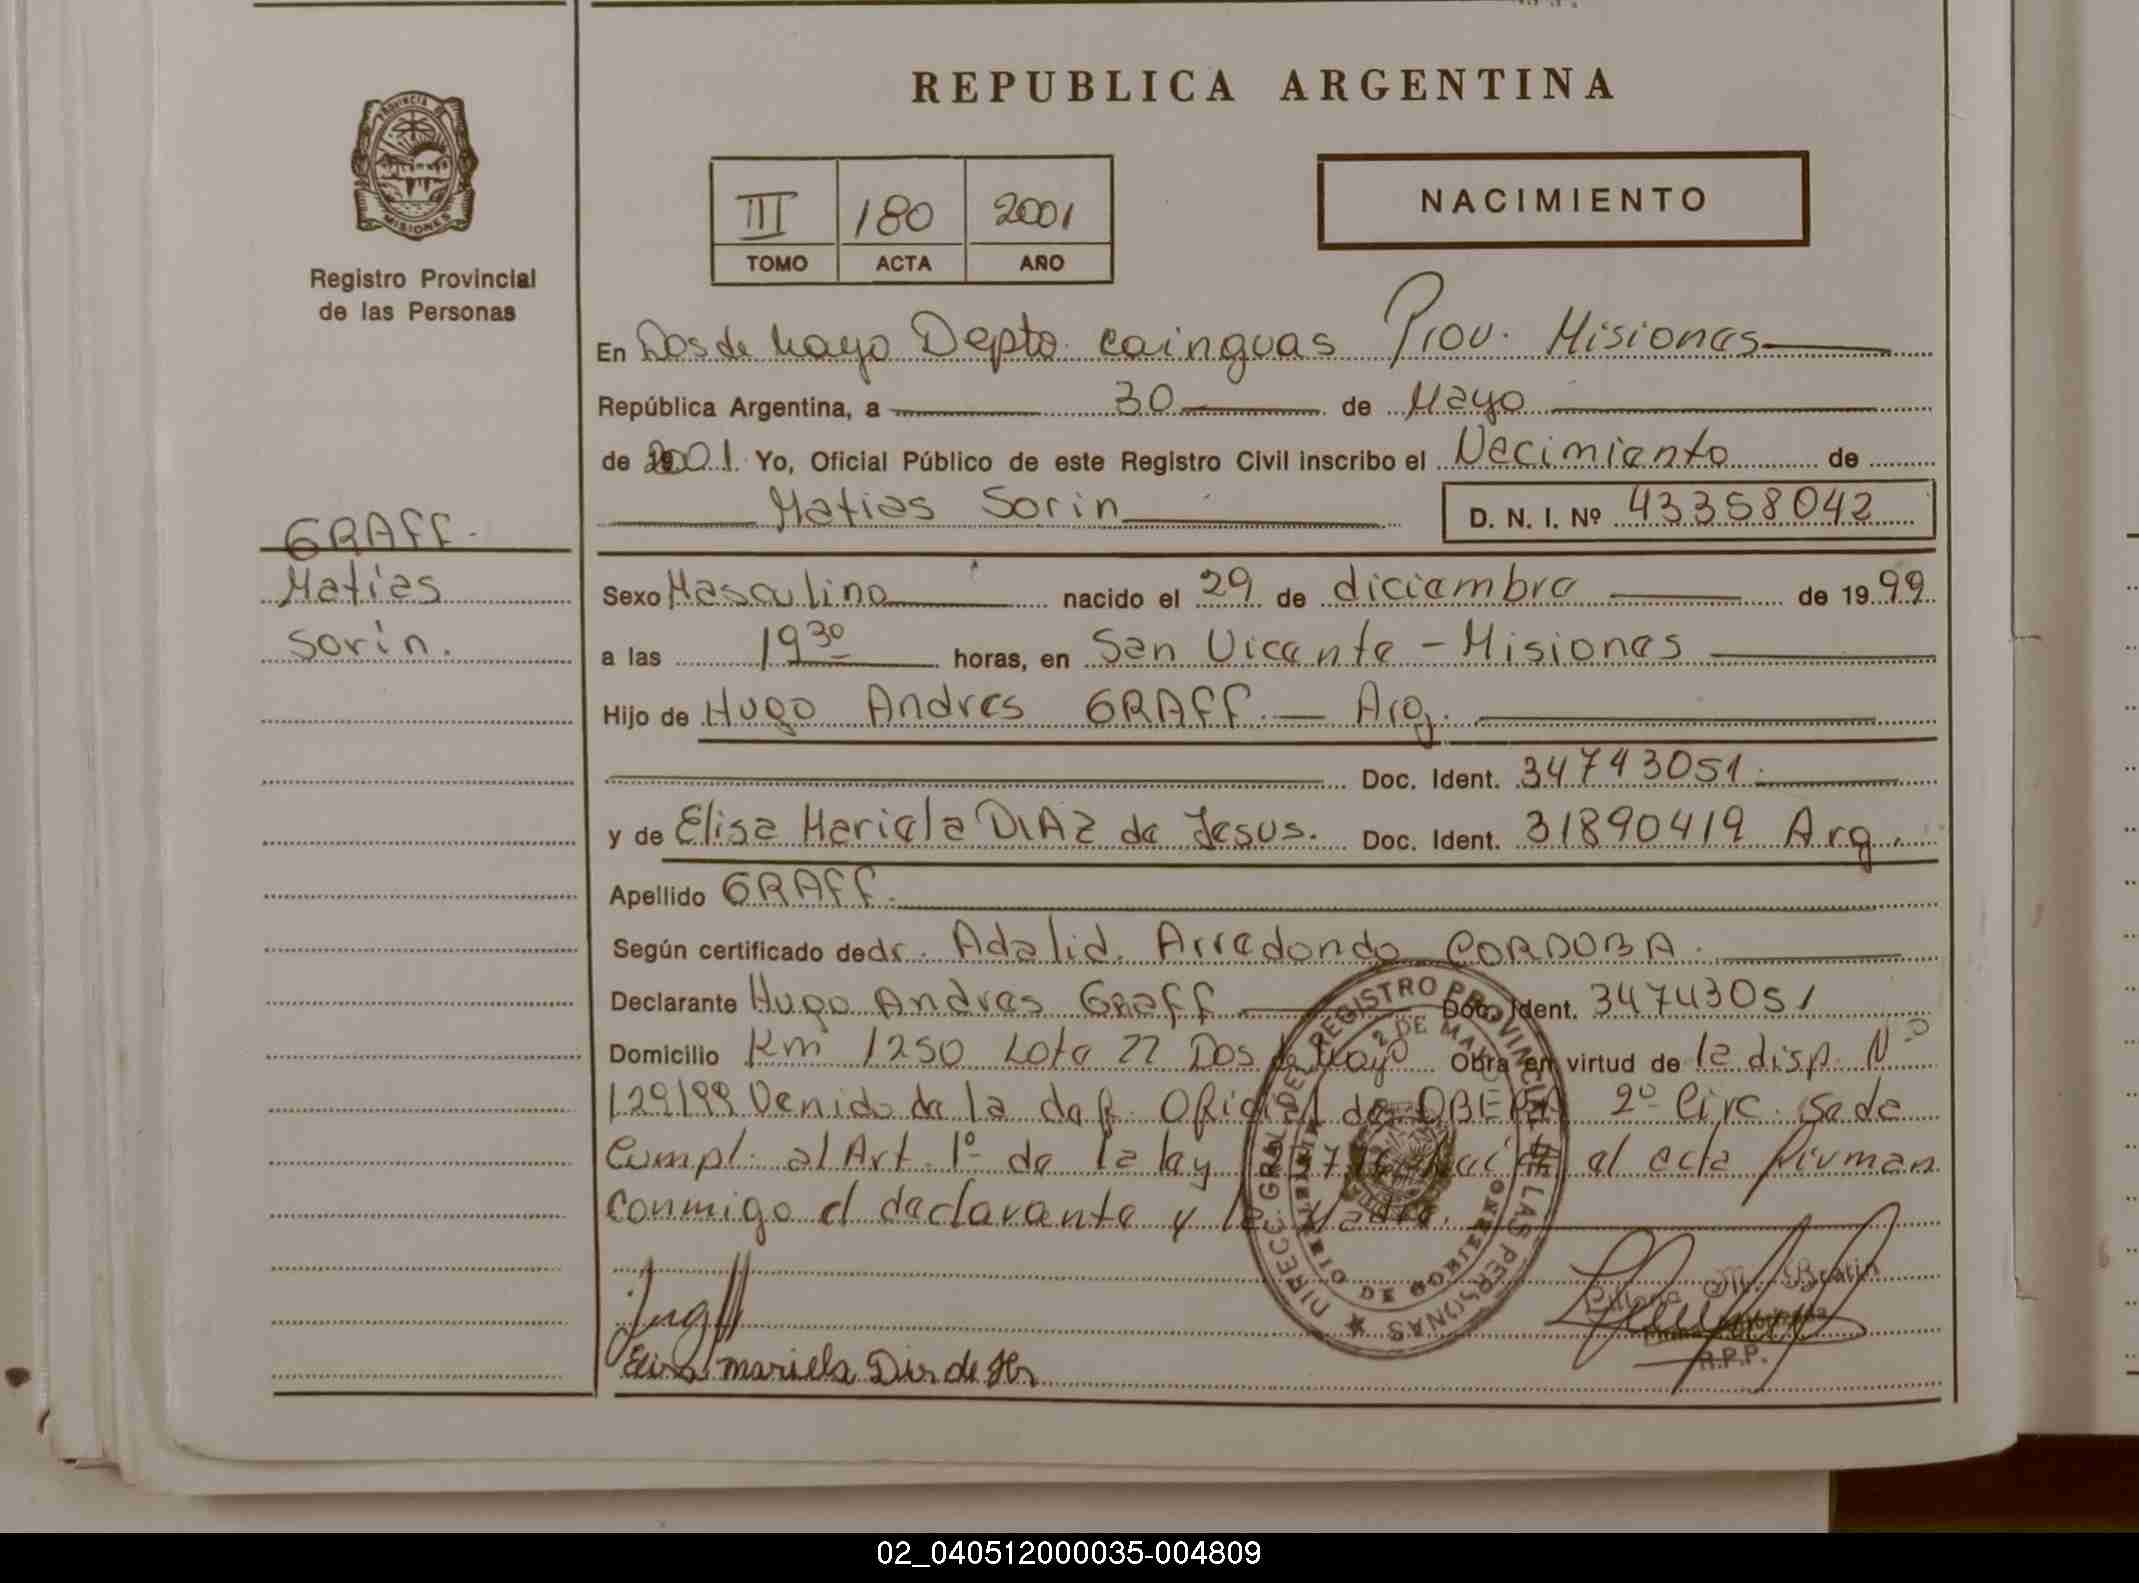 REPUBLICA ARGENTINA
PROVINCIA DE MISIONES
Registro Provincial
de las Personas
III 180 2001
TOMO ACTA AÑO
NACIMIENTO
En Dos de Mayo Depto. cainguas Prov. Misiones
República Argentina, a 30 de Mayo
de 2001. Yo, Oficial Público de este Registro Civil inscribo el Nacimiento de
Matias Sorin D. N. I. Nº 43358042
GRAFF.
Matias
Sorin.
Sexo Masculino nacido el 29 de diciembre de 1999
a las 19 30 horas, en San Vicente - Misiones
Hijo de Hugo Andres GRAFF. Arg.
Doc. Ident. 34743051
y de Elisa Mariela DIAZ de Jesus. Doc. Ident. 31890419 Arg.
Apellido GRAFF.
Según certificado de dr. Adalid. Arredondo CORDOBA.
Declarante Hugo Andres Graff Doc. Ident. 34743051
Domicilio Km 1250 Lote 22 Dos de Mayo Obra en virtud de la disp. Nº
129/99 Venido de la def. Oficial de OBERA 2º Circ. se da
Cumpl. al Art. 1º de la ley el acta firman
Conmigo el declarante y la Madre.
DIRECC. GRAL. DEL REGISTRO PROVINCIAL DE LAS PERSONAS
2 DE MAYO
Elisa mariela
R.P.P.
02_040512000035-004809